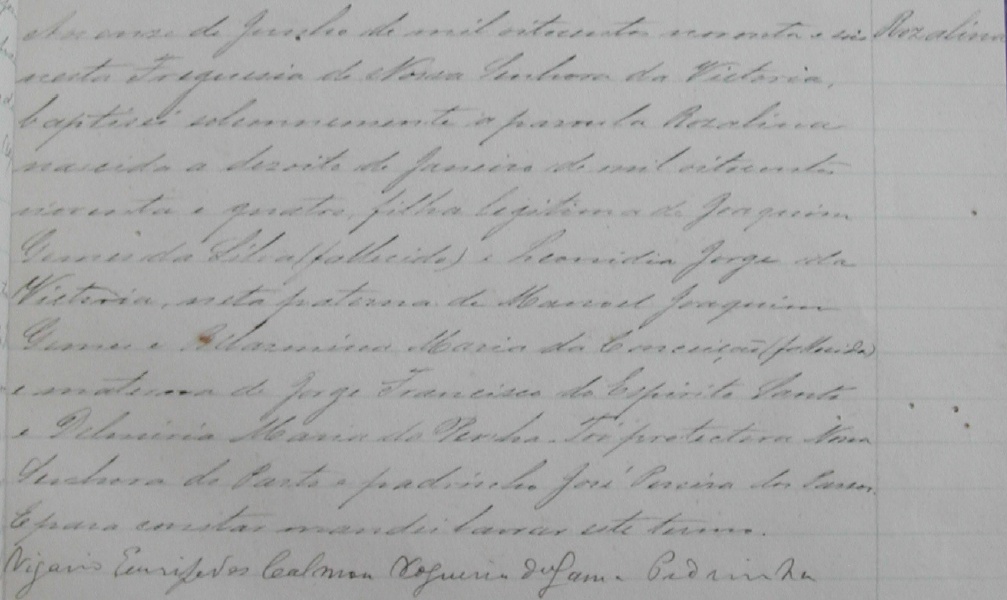 Aos onze de Junho de mil oitocentos noventa e seis Rozalina
nesta Freguesia de Nossa Senhora da Victoria,
baptisei solemnemente a parvula Rozalina
nascida a dezoito de Janeiro de mil oitocentos
noventa e quatro, filha legitima de Joaquim
Gomes da Silva (fallecido) e Leonidia Jorge da
Victoria, neta paterna de Manoel Joaquim
Gomes e Maria da Conceição (fallecida)
e materna de Jorge Francisco do Espirito Santo
e Maria da Penha. Foi protectora Nossa
Senhora do Parto e padrinho José Pereira dos Passos.
E para constar mandei lavrar este termo.
Vigario Euripedes Calmon Nogueira da Gama Pedrinha